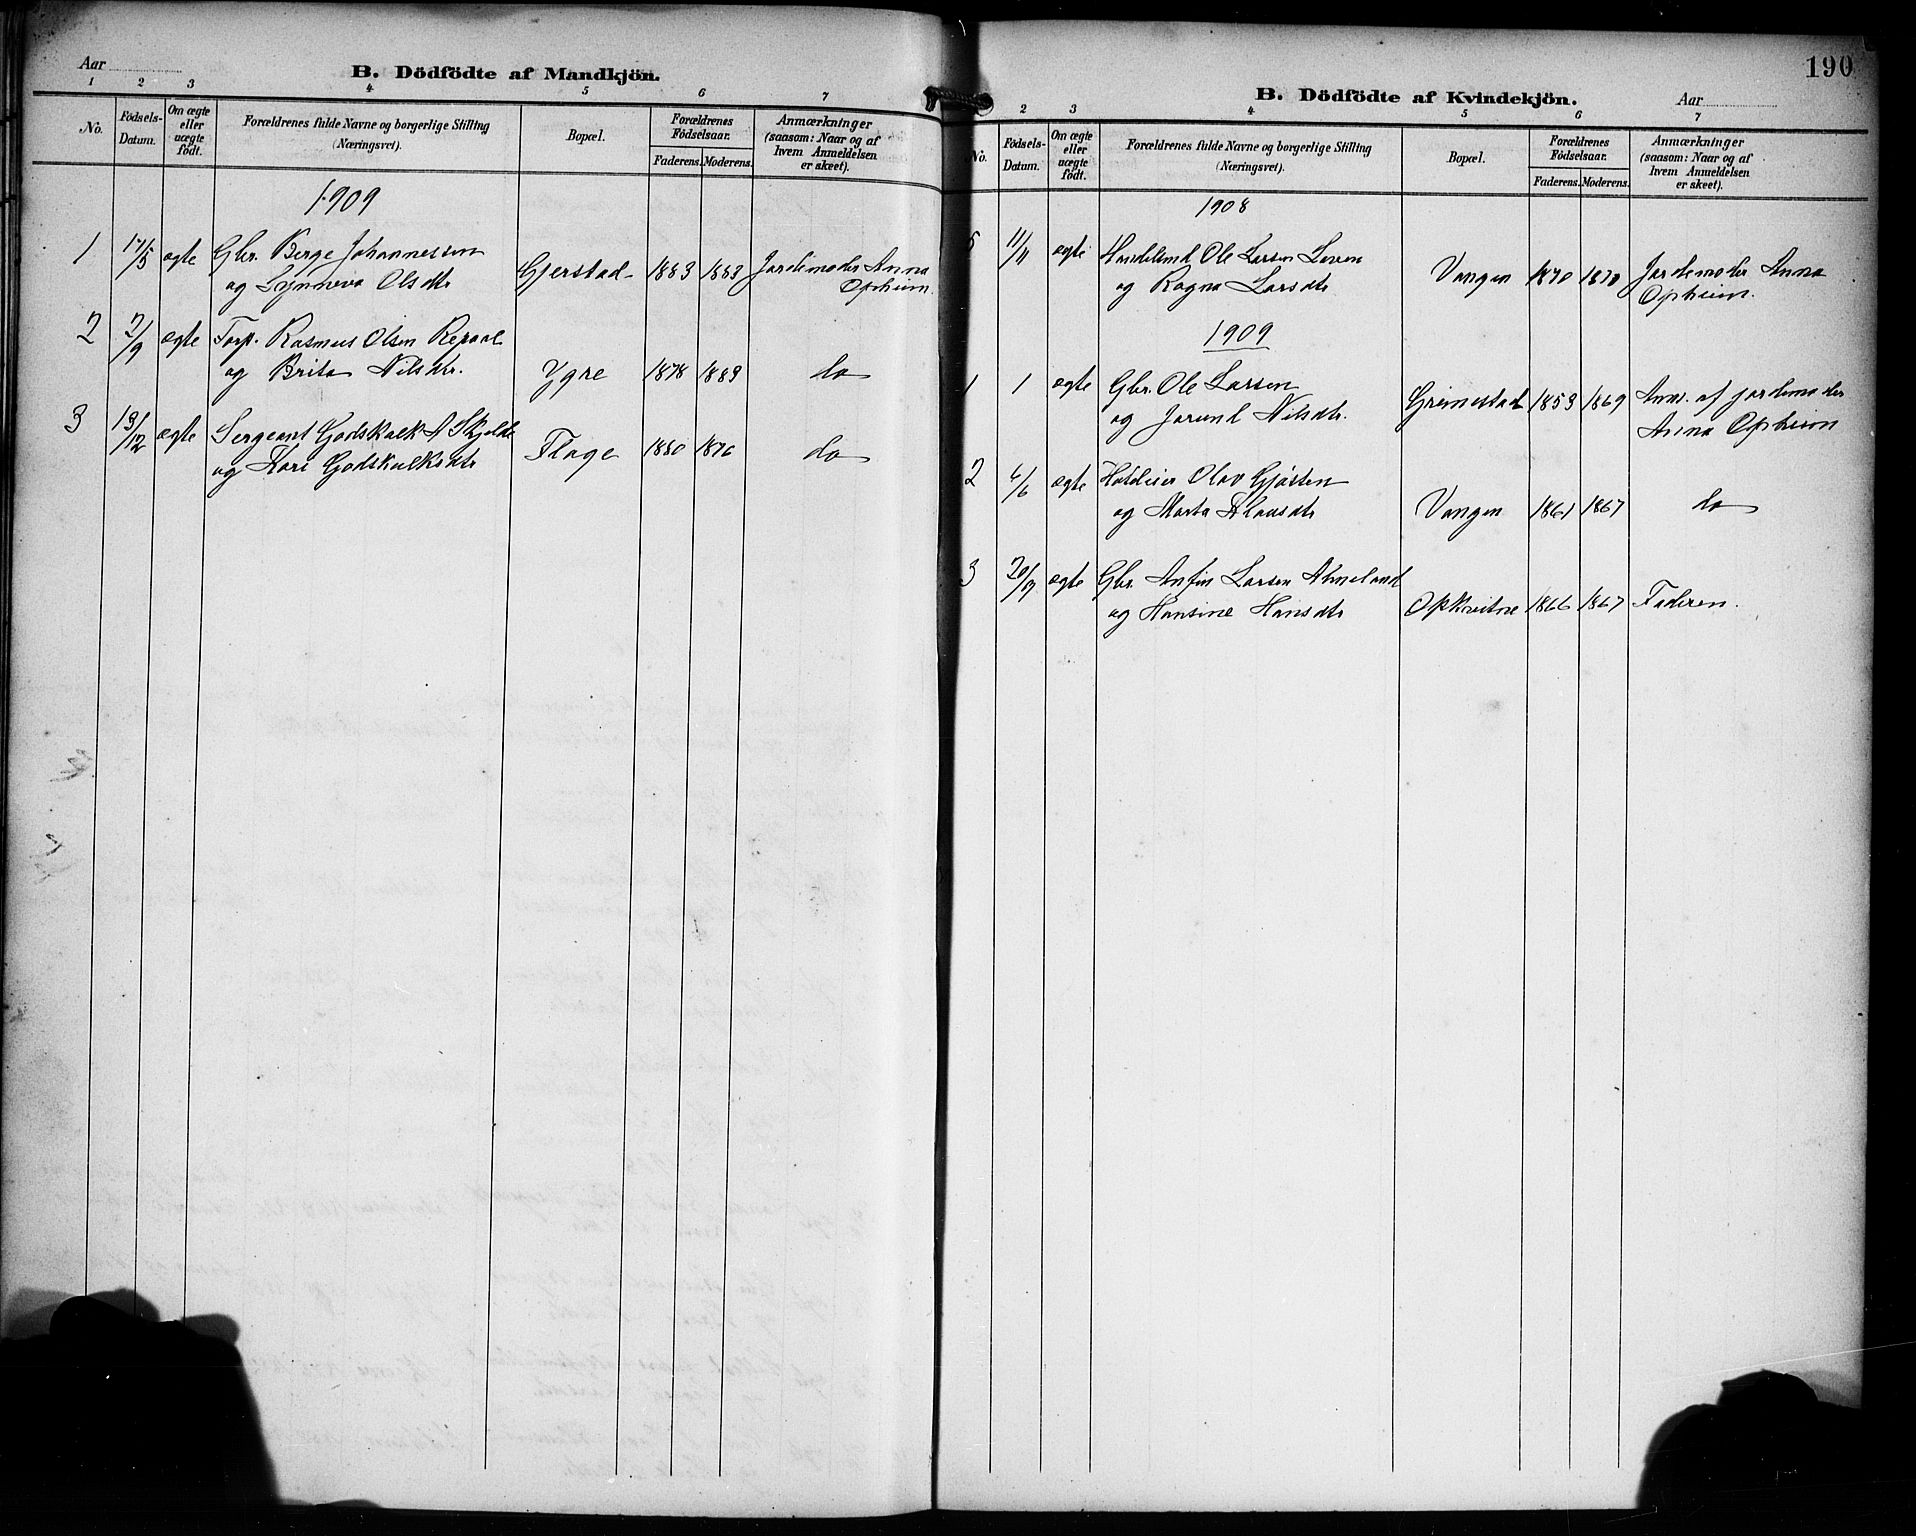 Aar
B. Dödfödte af Mandkjön.
1 2 3 4 5 6 7
No.
Födsels-Datum.
Om ægte eller uægte födt.
Forældrenes fulde Navne og borgerlige Stilling (Næringsvei).
Bopæl.
Forældrenes Födselsaar.
Faderens. Moderens.
Anmærkninger (saasom: Naar og af hvem Anmeldelsen er skeet).
1909
1 17/5 ægte Gbr. Berge Johannessen
og Synneva Olsdtr Gjerstad 1883 1883 Jordemoder Anna
Opheim.
2 2/9 ægte Torp. Rasmus Olsen Repaal
og Brita Nilsdtr. Ygre 1878 1889 do
3 13/12 ægte Sergeant Godskalk A Skjelde
og Kari Godskalksdtr Flage 1880 1876 do
190
B. Dödfödte af Kvindekjön.
Aar
2 3 4 5 6 7
No.
Födsels-Datum.
Om ægte eller uægte födt.
Forældrenes fulde Navne og borgerlige Stilling (Næringsvei).
Bopæl.
Forældrenes Födselsaar.
Faderens. Moderens.
Anmærkninger (saasom: Naar og af hvem Anmeldelsen er skeet).
1908
5 11/11 ægte Handelsmd Ole Larsen
og Ragna Larsdtr Vangen 1870 1870 Jordemoder Anna
Opheim.
1909
1 1 ægte Gbr. Ole Larsen
og Jorund Nilsdtr. Grimestad 1853 1869 Anm. af jordemoder
Anna Opheim
2 6/6 ægte Hotelier Olav Gjøstein
og Marta Klausdtr Vangen 1861 1867 do
3 20/9 ægte Gbr. Anfin Larsen
og Hansine Hansdtr Opkvitne 1866 1867 Faderen.